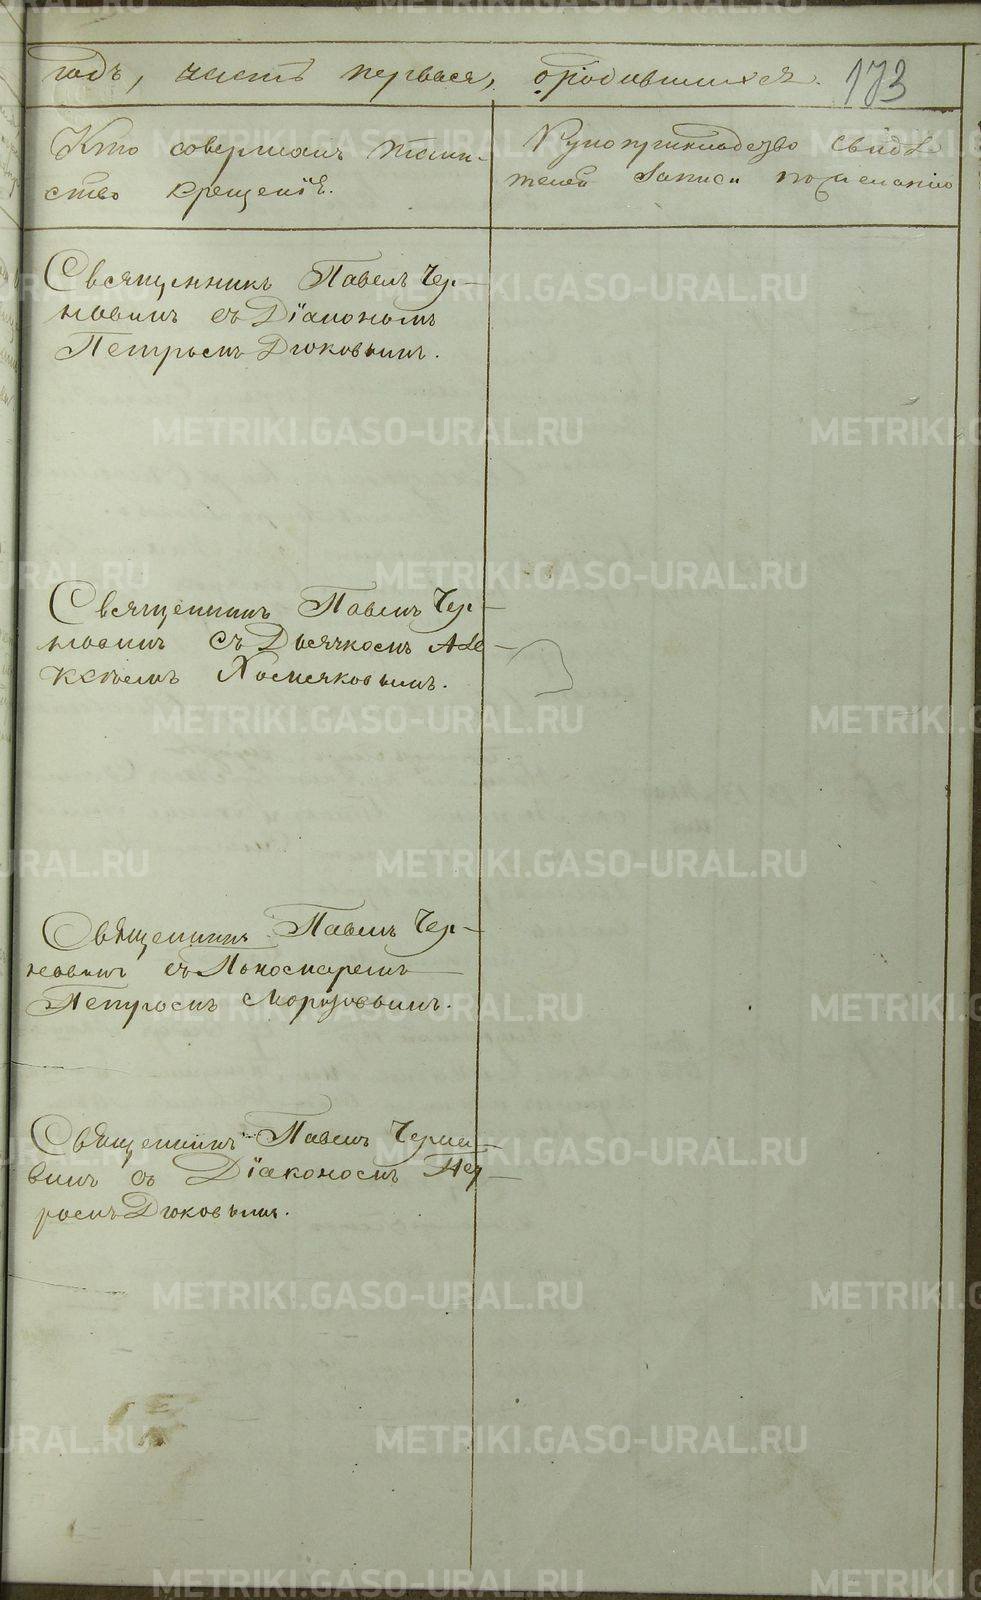 годъ, часть первая, о родившихся. 173
Кто совершалъ таин-
ство крещенія.
Рукоприкладство свидѣ
телей записи по желанію
Священникъ Павелъ Чер-
навинъ съ Діакономъ
Петромъ Дюковымъ.
Священникъ Павелъ Чер-
навинъ съ Дьячкомъ Але-
ксѣемъ Хомяковымъ.
Священникъ Павелъ Чер-
навинъ съ Пономаремъ
Петромъ Морозовымъ.
Священникъ Павелъ Черна-
винъ съ Діакономъ Пет-
ромъ Дюковымъ.
METRIKI.GASO-URAL.RU